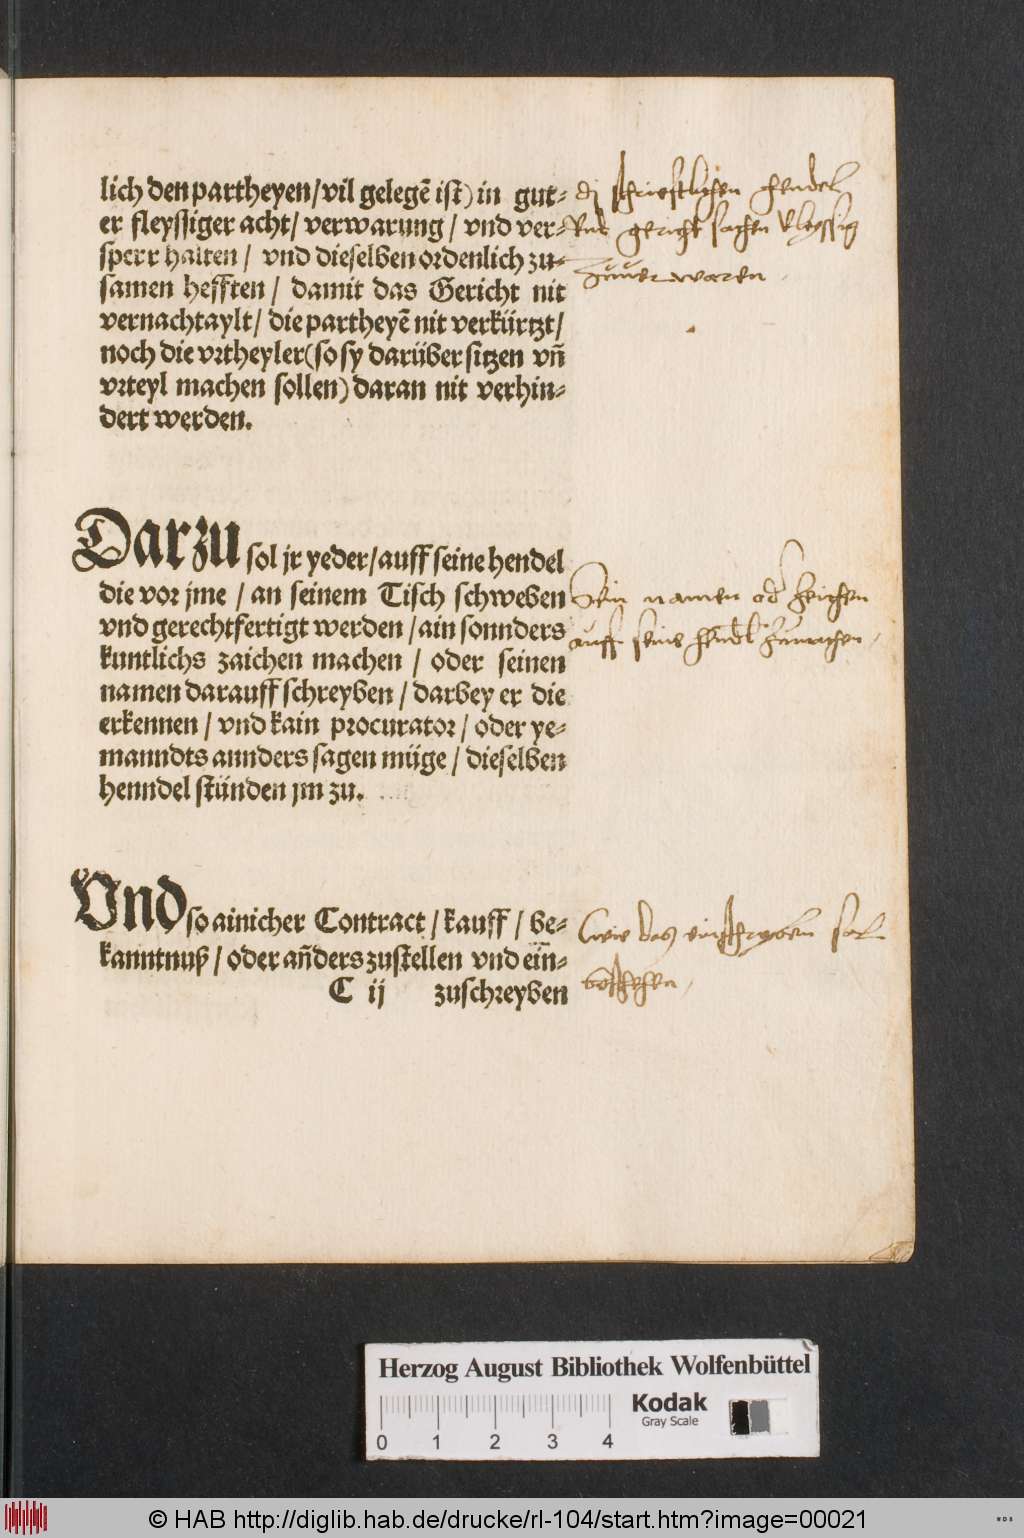 lich den partheyen/vil gelegē ist) in gut-
er fleyssiger acht/ verwarung/ vnd ver-
sperr halten/ vnd dieselben ordenlich zu-
samen hefften/ damit das Gericht nit
vernachtaylt/ die partheyē nit verkürtzt/
noch die vrtheyler(so sy darüber sitzen vñ
vrteyl machen sollen) daran nit verhin-
dert werden.
di schriefftlichen hendel
vnd gericht sachen vleyssig
zuuerwaren
Darzu sol jr yeder/auff seine hendel
die vor jme/ an seinem Tisch schweben
vnd gerechtfertigt werden/ ain sonnders
kuntlichs zaichen machen/ oder seinen
namen darauff schreyben/ darbey er die
erkennen/ vnd kain procurator/ oder ye-
manndts annders sagen müge/ dieselben
henndel stünden jm zu.
Sein namen od zeichen
auff seine hendl zumachen
Vnd so ainicher Contract/ kauff/ be-
kanntnuß/ oder añders zustellen vnd ein-
C ij zuschreyben
wie das einschreyben sol
beschehen
Herzog August Bibliothek Wolfenbüttel
Kodak
Gray Scale
0 1 2 3 4
© HAB http://diglib.hab.de/drucke/rl-104/start.htm?image=00021